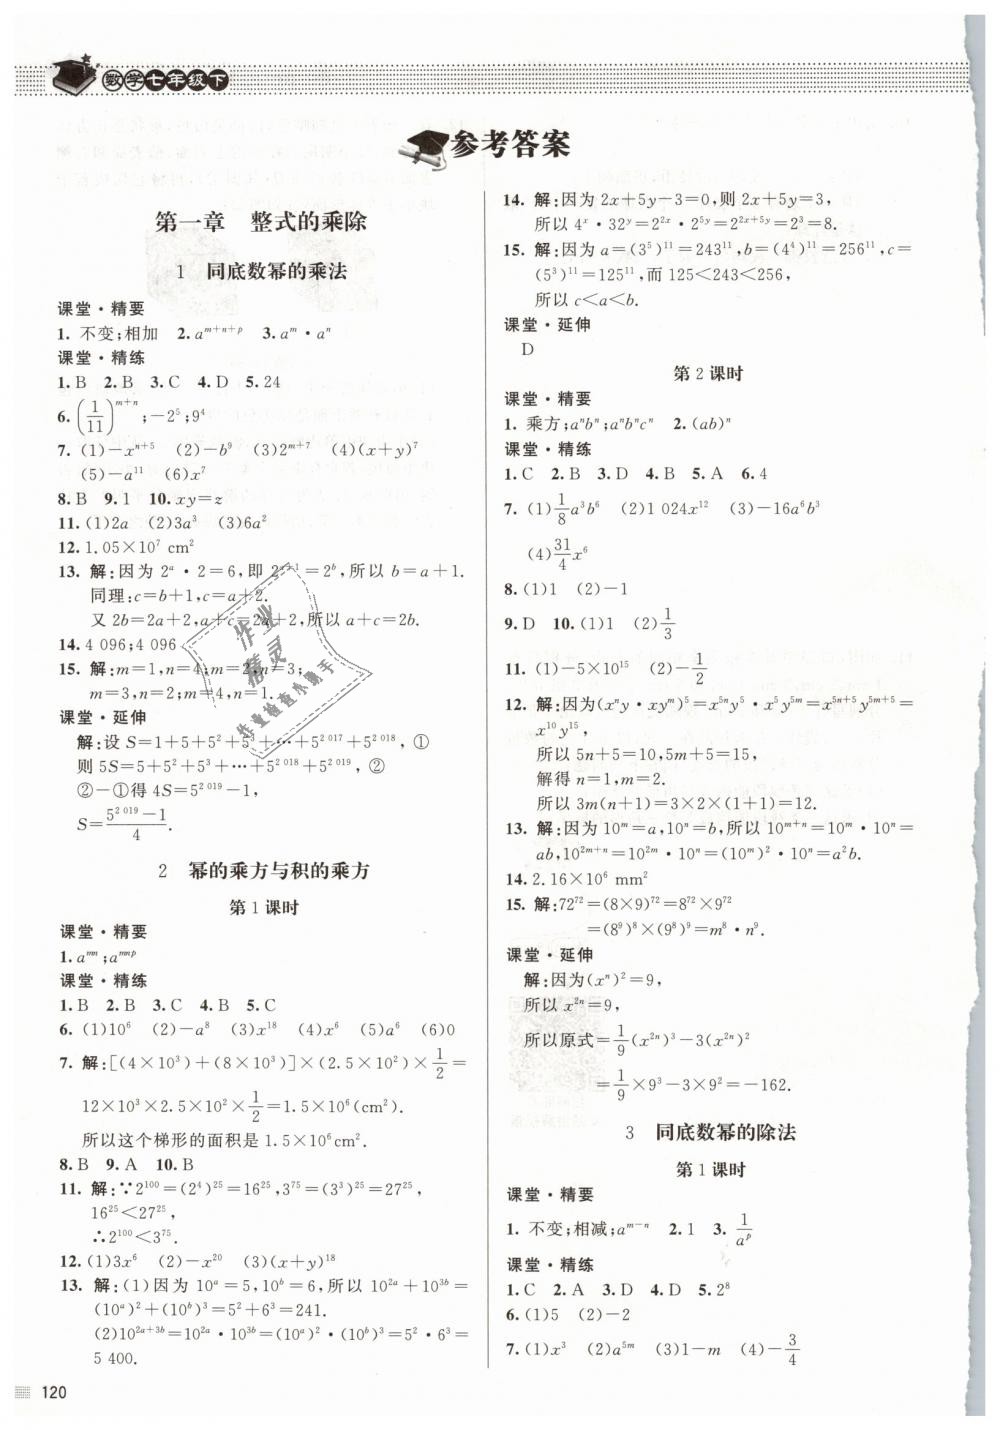 数学七年级下
参考答案
第一章 整式的乘除
1 同底数幂的乘法
课堂·精要
1. 不变;相加 2. a^{m+n+p} 3. a^m·a^n
课堂·精练
1. B 2. B 3. C 4. D 5. 24
6. (1/11)^{m+n};-2^5;9^4
7. (1)-x^{n+5} (2)-b^9 (3)2^{m+7} (4)(x+y)^7
(5)-a^{11} (6)x^7
8. B 9. 1 10. xy=z
11. (1)2a (2)3a^3 (3)6a^2
12. 1.05×10^7 cm^2
13. 解:因为 2^a·2=6,即 2^{a+1}=2^b,所以 b=a+1.
同理:c=b+1,c=a+2.
又 2b=2a+2,a+c=2a+2,所以 a+c=2b.
14. 4 096;4 096
15. 解:m=1,n=4;m=2,n=3;
m=3,n=2;m=4,n=1.
课堂·延伸
解:设 S=1+5+5^2+5^3+…+5^{2 017}+5^{2 018},①
则 5S=5+5^2+5^3+…+5^{2 018}+5^{2 019},②
②-①得 4S=5^{2 019}-1,
S=(5^{2 019}-1)/4.
2 幂的乘方与积的乘方
第 1 课时
课堂·精要
1. a^{mn};a^{mnp}
课堂·精练
1. B 2. B 3. C 4. B 5. C
6. (1)10^6 (2)-a^8 (3)x^{18} (4)x^6 (5)a^6 (6)0
7. 解:[(4×10^3)+(8×10^3)]×(2.5×10^2)×1/2=
12×10^3×2.5×10^2×1/2=1.5×10^6(cm^2).
所以这个梯形的面积是 1.5×10^6cm^2.
8. B 9. A 10. B
11. 解:∵2^{100}=(2^4)^{25}=16^{25},3^{75}=(3^3)^{25}=27^{25},
16^{25}<27^{25},
∴2^{100}<3^{75}.
12. (1)3x^6 (2)-x^{20} (3)(x+y)^{18}
13. 解:(1)因为 10^a=5,10^b=6,所以 10^{2a}+10^{3b}=
(10^a)^2+(10^b)^3=5^2+6^3=241.
(2)10^{2a+3b}=10^{2a}·10^{3b}=(10^a)^2·(10^b)^3=5^2·6^3=
5 400.
120
14. 解:因为 2x+5y-3=0,则 2x+5y=3,
所以 4^x·32^y=2^{2x}·2^{5y}=2^{2x+5y}=2^3=8.
15. 解:因为 a=(3^5)^{11}=243^{11},b=(4^4)^{11}=256^{11},c=
(5^3)^{11}=125^{11},而 125<243<256,
所以 c<a<b.
课堂·延伸
D
第 2 课时
课堂·精要
1. 乘方;a^nb^n;a^nb^nc^n 2. (ab)^n
课堂·精练
1. C 2. B 3. D 4. B 5. A 6. 4
7. (1)1/8a^3b^6 (2)1 024x^{12} (3)-16a^6b^3
(4)31/4x^6
8. (1)1 (2)-1
9. D 10. (1)1 (2)1/3
11. (1)-5×10^{15} (2)-1/2
12. 解:因为(x^ny·xy^m)^5=x^{5n}y^5·x^5y^{5m}=x^{5n+5}y^{5m+5}=
x^{10}y^{15},
所以 5n+5=10,5m+5=15,
解得 n=1,m=2.
所以 3m(n+1)=3×2×(1+1)=12.
13. 解:因为 10^m=a,10^n=b,所以 10^{m+n}=10^m·10^n=
ab,10^{2m+n}=10^{2m}·10^n=(10^m)^2·10^n=a^2b.
14. 2.16×10^6 mm^2
15. 解:72^{72}=(8×9)^{72}=8^{72}×9^{72}
=(8^9)^8×(9^8)^9=m^8·n^9.
课堂·延伸
解:因为(x^n)^2=9,
所以 x^{2n}=9,
所以原式=1/9(x^{2n})^3-3(x^{2n})^2
=1/9×9^3-3×9^2=-162.
3 同底数幂的除法
第 1 课时
课堂·精要
1. 不变;相减;a^{m-n} 2. 1 3. 1/a^p
课堂·精练
1. C 2. A 3. D 4. D 5. 2^8
6. (1)5 (2)-2
7. (1)x^3 (2)a^{5m} (3)1-m (4)-3/4
作业
精灵
作业检查小助手